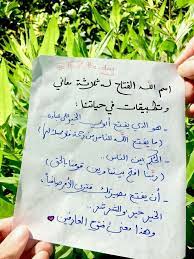 اسم الله الفتاح له ثلاثة معاني
وتطبيقات في حياتنا:
- هو الذي يفتح أبواب الخير لعباده
(ما يفتح الله للناس من رحمة فلا ممسك لها)
- الحكم بين الناس..
(ربنا افتح بيننا وبين قومنا بالحق)
- أن يفتح بصيرتك فترى الأمر صائباً
الخير خير والشر شر..
وهذا معنى فتوح العارفين